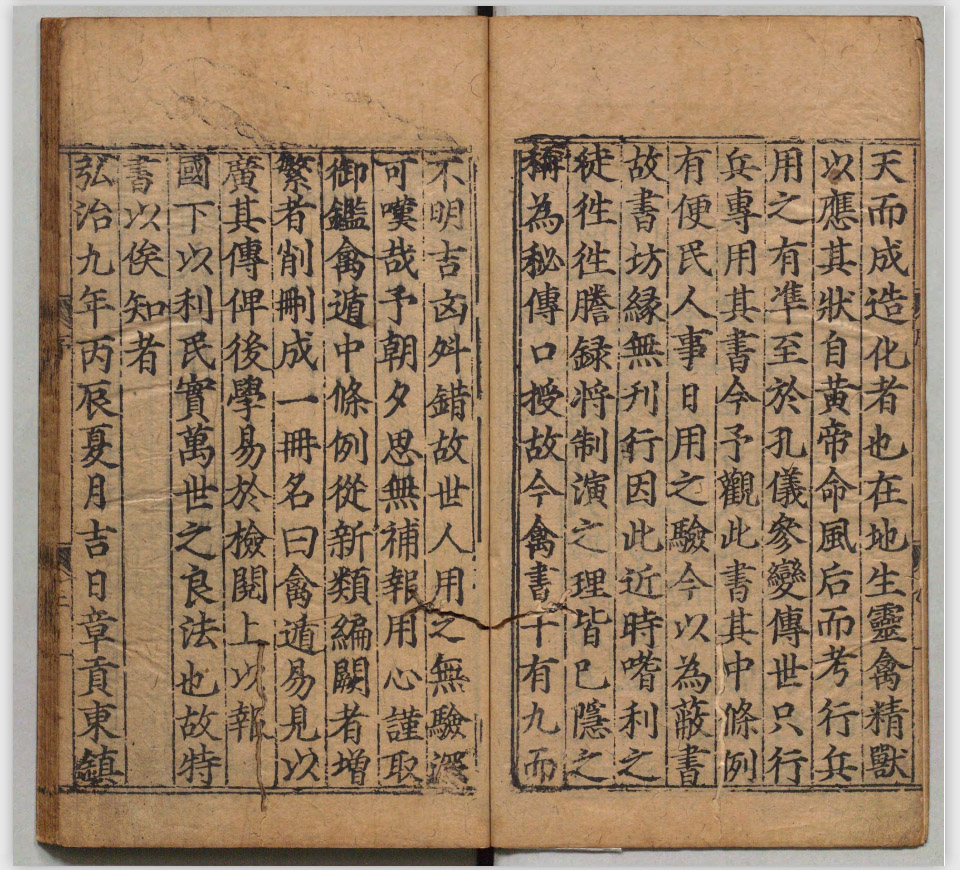 天而成造化者也在地生靈禽精獸
以應其狀自黄帝命風后而考行兵
用之有凖至於孔儀參變傳世只行
兵專用其書今予觀此書其中條例
有便民人事日用之驗今以為蔽書
故書坊縁無刋行因此近時嗜利之
徒徃徃謄録将制演之理皆已隱之
稱為秘傳口授故今禽書十有九而
不明吉㐫舛錯故世人用之無驗深
可嘆哉予朝夕思無補報用心謹取
御鑑禽遁中條例從新類編闕者增
繁者削刪成一冊名曰禽遁易見以
廣其傳俾後學易於檢閱上以報
國下以利民實萬世之良法也故特
書以俟知者
弘治九年丙辰夏月吉日章貢東鎮